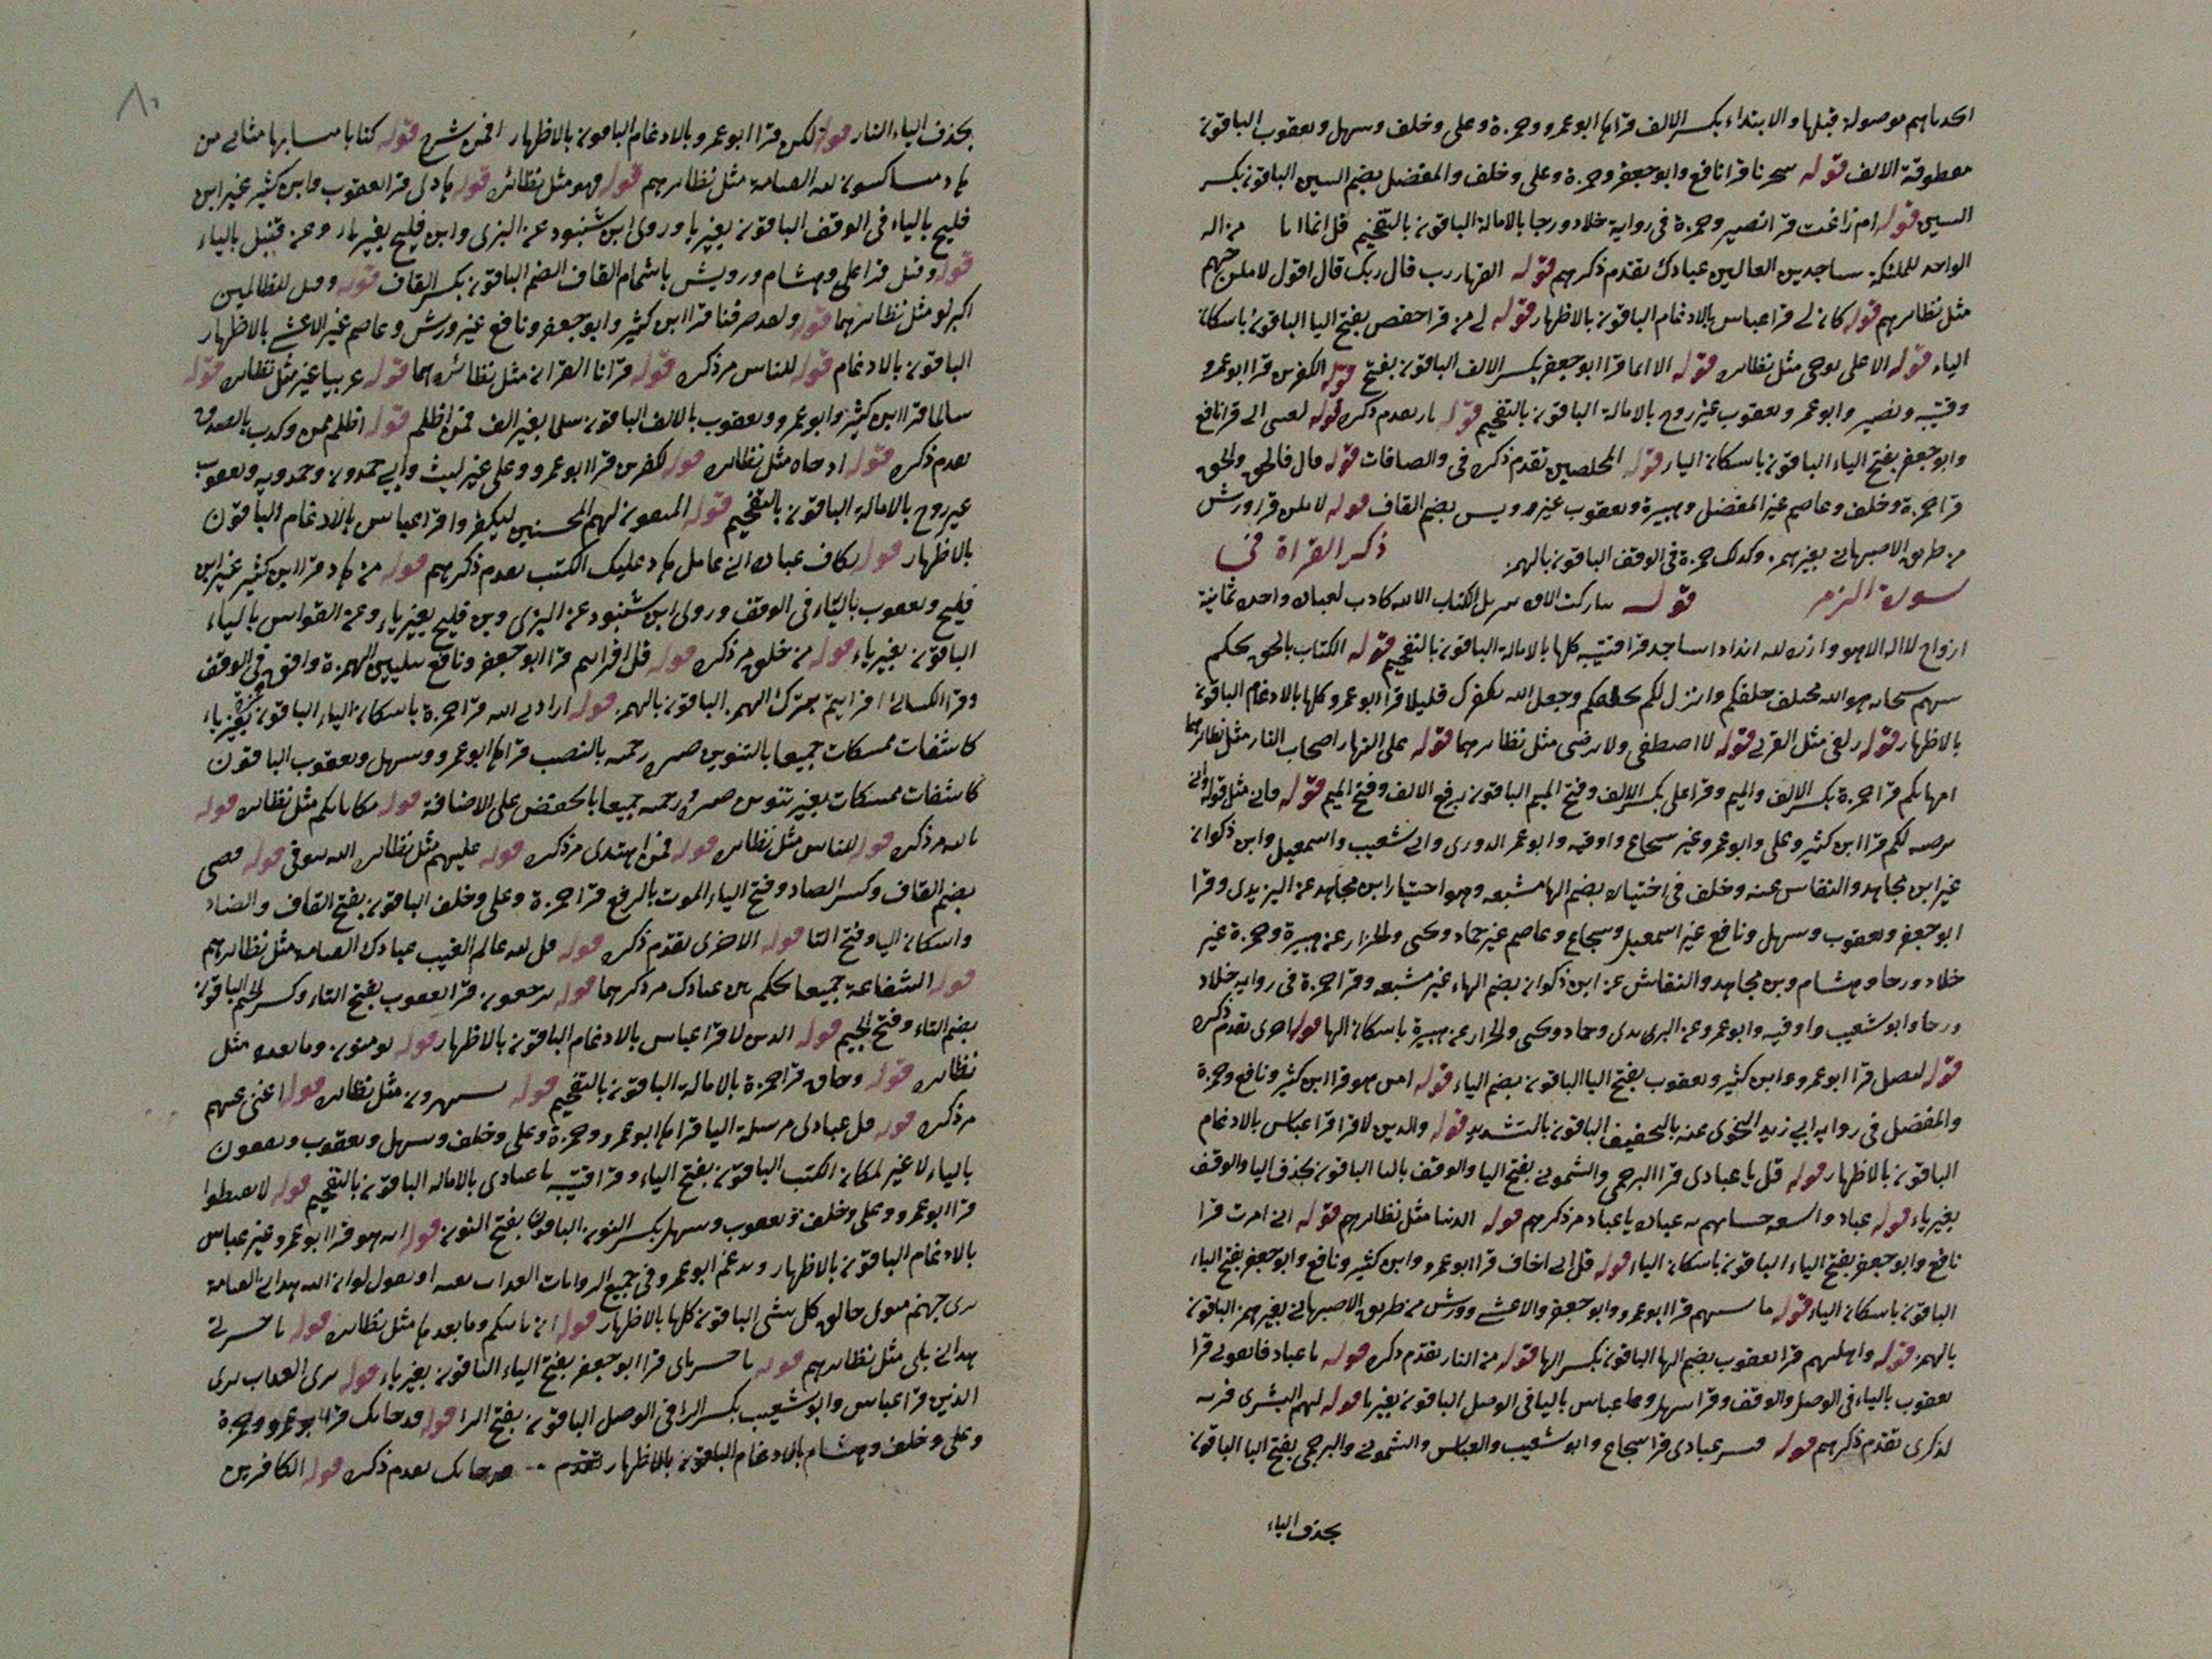 اتخذناهم موصولة قبلها والابتداء بكسر الالف قراها ابو عمرو وحمزة وعلي وخلف وسهل ويعقوب الباقون
مقطوعة الالف قوله سخريا قرا نافع وابو جعفر وحمزة وعلي وخلف والمفضل بضم السين الباقون بكسر
السين قوله ام زاغت قرا نصير وحمزة في رواية خلاد ورجا بالامالة الباقون بالتفخيم قل انما انا من اله
الواحد للملئكة ساجدين العالين عبادك تقدم ذكرهم قوله القهار رب قال ربك قال اقول لاملن جهنم
مثل نظائرهم قوله كان لي قرا عباس بالادغام الباقون بالاظهار قوله لي من قرا حفص بفتح اليا الباقون باسكان
الياء قوله الاعلى يوحى مثل نظائره قوله الا انما قرا ابو جعفر بكسر الالف الباقون بفتح قوله الكفرين قرا ابو عمرو
وقتيبه ونصير وابو عمر ويعقوب غير روح بالامالة الباقون بالتفخيم قوله نار تقدم ذكره قوله لعنتي الى قرا نافع
وابو جعفر بفتح الياء الباقون باسكان الياء قوله المخلصين تقدم ذكره في والصافات قوله قال فالحق والحق
قرا حمزة وخلف وعاصم غير المفضل وهبيرة ويعقوب غير رويس بضم القاف قوله لاملن قرا ورش
من طريق الاصبهاني بغير همز وكذلك حمزة في الوقف الباقون بالهمز ذكر القراة في
سورة الزمر قوله الكتاب الالف كاذب لعباده واحدة ثمانية
ازواج لا اله الا هو وازرة لله اندادا ساجد قرا قتيبه كلها بالامالة الباقون بالتفخيم قوله الكتاب بالحق يحكم
بينهم سبحانه هو الله يخلق خلقكم وانزل لكم يخلقكم وجعل لله بكفرك قليلا قرا ابو عمرو كلها بالادغام الباقون
بالاظهار قوله زلفى مثل القربى قوله لاصطفى ولا يرضى مثل نظائرهما قوله على النهار اصحاب النار مثل نظائرهما
امهاتكم قرا حمزة بكسر الالف والميم وقرا علي بكسر الالف وفتح الميم الباقون برفع الالف وفتح الميم قوله فانى مثل قوله وانى
يرضه لكم قرا ابن كثير وعلي وابو عمرو غير شجاع واوقيه وابو عمر الدوري وابي شعيب واسمعيل وابن ذكوان
غير ابن مجاهد والنقاش عنه وخلف في اختياره بضم الها مشبعه وهو اختيار ابن مجاهد عن اليزيدي وقرا
ابو جعفر ويعقوب وسهل ونافع غير اسمعيل وشجاع وعاصم غير حماد ويحيى والخزاز عن هبيرة وحمزة غير
خلاد ورجا وهشام وبن مجاهد والنقاش عن ابن ذكوان بضم الهاء غير مشبعه وقرا حمزة في روايه خلاد
ورجا وابو شعيب واوقيه وابو عمرو عن اليزيدي وحماد ويحيى والخزاز عن هبيرة باسكان الها قوله اخرى تقدم ذكره
قوله ليضل قرا ابو عمرو وابن كثير ويعقوب بفتح اليا الباقون بضم الياء قوله امن هو قرا ابن كثير ونافع وحمزة
والمفضل في روايه ابي زيد النحوي عنه بالتخفيف الباقون بالتشديد قوله والذين لا قرا عباس بالادغام
الباقون بالاظهار قوله قل يا عبادي قرا البرجمي والشموني بفتح اليا والوقف باليا الباقون بحذف اليا والوقف
بغير ياء قوله عباد عباده يا عباد مر ذكرهم قوله الدنيا مثل نظائرهم قوله اني امرت قرا
نافع وابو جعفر بفتح الياء الباقون باسكان الياء قوله قل اني اخاف قرا ابو عمرو وابن كثير ونافع وابو جعفر بفتح الياء
الباقون باسكان الياء قوله ما شئتم قرا ابو عمرو وابو جعفر والاعشى وورش من طريق الاصبهاني بغير همز الباقون
بالهمز قوله واهليهم قرا يعقوب بضم الها الباقون بكسر الها قوله من النار تقدم ذكره قوله يا عباد فاتقون قرا
يعقوب بالياء في الوصل والوقف وقرا سهل وعباس باليا في الوصل الباقون بغير يا قوله لهم البشرى
لذكرى تقدم ذكرهم قوله فبشر عبادي قرا شجاع وابو شعيب والعباس والشموني والبرجمي بفتح اليا الباقون
بحذف الياء
٨٠
بحذف الياء النار قوله لكن قرا ابو عمرو بالادغام الباقون بالاظهار افمن شرح قوله كتابا متشابها مثاني من
هاد متشاكسون لله القيامة مثل نظائرهم قوله فهو مثل نظائره قوله هادي قرا يعقوب وابن كثير غير ابن
فليح بالياء في الوقف الباقون بغير يا وروى ابن شنبوذ عن البزي وابن فليح بغير ياء وعن قنبل بالياء
قوله وقيل قرا علي وهشام ورويس باشمام القاف الضم الباقون بكسر القاف قوله وقيل للظالمين
اكبر لو مثل نظائرهما قوله ولقد صرفنا قرا ابن كثير وابو جعفر ونافع غير ورش وعاصم غير الاعشى بالاظهار
الباقون بالادغام قوله للناس مر ذكره قوله قرانا القران مثل نظائرهما قوله عربيا غير مثل نظائره قوله
سالما قرا ابن كثير وابو عمرو ويعقوب بالالف الباقون سلما بغير الف فمن اظلم قوله اظلم ممن وكذب بالصدق
تقدم ذكره قوله اذ جاءه مثل نظائره قوله للكفرين قرا ابو عمرو وعلي غير ليث وابي حمدون وحمدويه ويعقوب
غير روح بالامالة الباقون بالتفخيم قوله المتقون لهم المحسنين ليكفر وا قرا عباس بالادغام الباقون
بالاظهار قوله بكاف عباده اني عامل هاد عليك الكتب تقدم ذكرهم قوله من هاد قرا ابن كثير غير ابن
فليح ويعقوب بالياء في الوقف وروى ابن شنبوذ عن البزي وبن فليح بغير ياء وعن القواس بالياء
الباقون بغير ياء قوله من خلق مر ذكره قوله قل افرايتم قرا ابو جعفر ونافع بتليين الهمزة وافق حمزة في الوقف
وقرا الكسائي افرايتم بترك الهمز الباقون بالهمز قوله ارادني الله قرا حمزة باسكان الياء الباقون بغير ياء
كاشفات ممسكات جميعا بالتنوين ضره رحمته بالنصب قراها ابو عمرو وسهل ويعقوب الباقون
كاشفات ممسكات بغير تنوين ضره رحمته جميعا بالخفض على الاضافة قوله مكاناتكم مثل نظائره قوله
مر ذكره قوله للناس مثل نظائره قوله فمن اهتدى مر ذكره قوله عليهم مثل نظائره الله يتوفى قوله قضى
بضم القاف وكسر الضاد وفتح الياء الموت بالرفع قرا حمزة وعلي وخلف الباقون بفتح القاف والضاد
واسكان اليا وفتح التا قوله الاخرى تقدم ذكره قوله قل لله عالم الغيب عبادك القيامة مثل نظائرهم
قوله الشفاعة جميعا تحكم بين عبادك مر ذكرهما قوله ترجعون قرا يعقوب بفتح التاء وكسر الجيم الباقون
بضم التاء وفتح الجيم قوله الذين لا قرا عباس بالادغام الباقون بالاظهار قوله يومنون وما بعده مثل
نظائره قوله وحاق قرا حمزة بالامالة الباقون بالتفخيم قوله يستهزون مثل نظائره قوله اغنى عنهم
مر ذكره قوله قل عبادي مرسلة اليا قراها ابو عمرو وحمزة وعلي وخلف وسهل ويعقوب ويقفون
بالياء لا غير لمكان الكتب الباقون بفتح الياء وقرا قتيبه يا عبادي بالاماله الباقون بالتفخيم قوله لا تقنطوا
قرا ابو عمرو وعلي وخلف ويعقوب وسهل بكسر النون الباقون بفتح النون قوله انه هو قرا ابو عمرو غير عباس
بالادغام الباقون بالاظهار ويدغم ابو عمرو في جميع الروايات العذاب بغتة او تقول لو ان الله هداني القيامة
ترى جهنم مثوى خالق كل شي الباقون كلها بالاظهار قوله ان ياتيكم وما بعدها مثل نظائره قوله يا حسرتى
هداني بلى مثل نظائرهم قوله يا حسرتاى قرا ابو جعفر بفتح الياء الباقون بغير ياء قوله ترى العذاب ترى
الذين قرا عباس وابو شعيب بكسر الرا في الوصل الباقون بفتح الرا قوله قد جاتك قرا ابو عمرو وحمزة
وعلي وخلف وهشام بالادغام الباقون بالاظهار تقدم جاتك تقدم ذكره قوله الكافرين